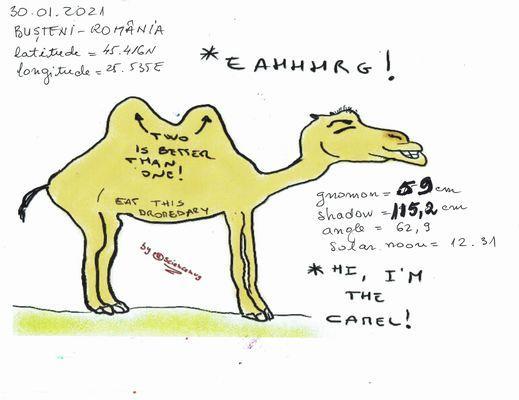 30.01.2021
BUȘTENI-ROMÂNIA
latitude = 45.416N
longitude = 25.535E
*EAHHHRG!
TWO
IS BETTER
THAN
ONE!
EAT THIS
DROMEDARY
by @Sciencemug
gnomon = 59 cm
shadow = 115,2 cm
angle = 62,9
Solar noon = 12.31
*HI, I'M
THE
CAMEL!